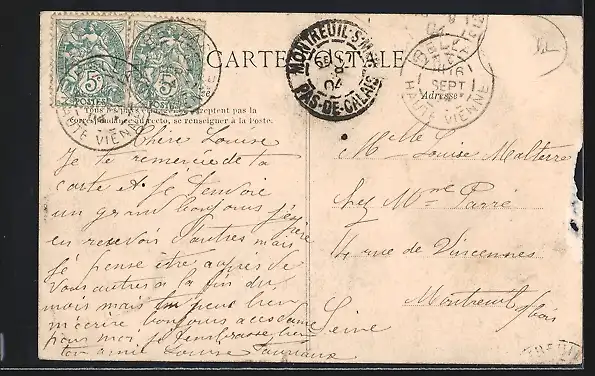 CARTE POSTALE
Tous les pays étrangers n'acceptent pas la
correspondance au recto, se renseigner à la Poste.
Adresse
5c
POSTES
5c
MONTREUIL-S-MER
8
04
PAS-DE-CALAIS
16
SEPT
HAUTE VIENNE
HAUTE VIENNE
Chère Louise
Je te remercie de ta
carte et je t'envoie
un grand bonjours j'espère
en recevoir d'autres mais
je pense être auprès de
vous autres a la fin du
mois mais tu peux bien
m'écrire bonjours
pour moi je t'embrasse bien
ton amie Louise
Melle Louise Malterre
chez Mme Parré
4 rue de Vincennes
Montreuil s/bois
Seine